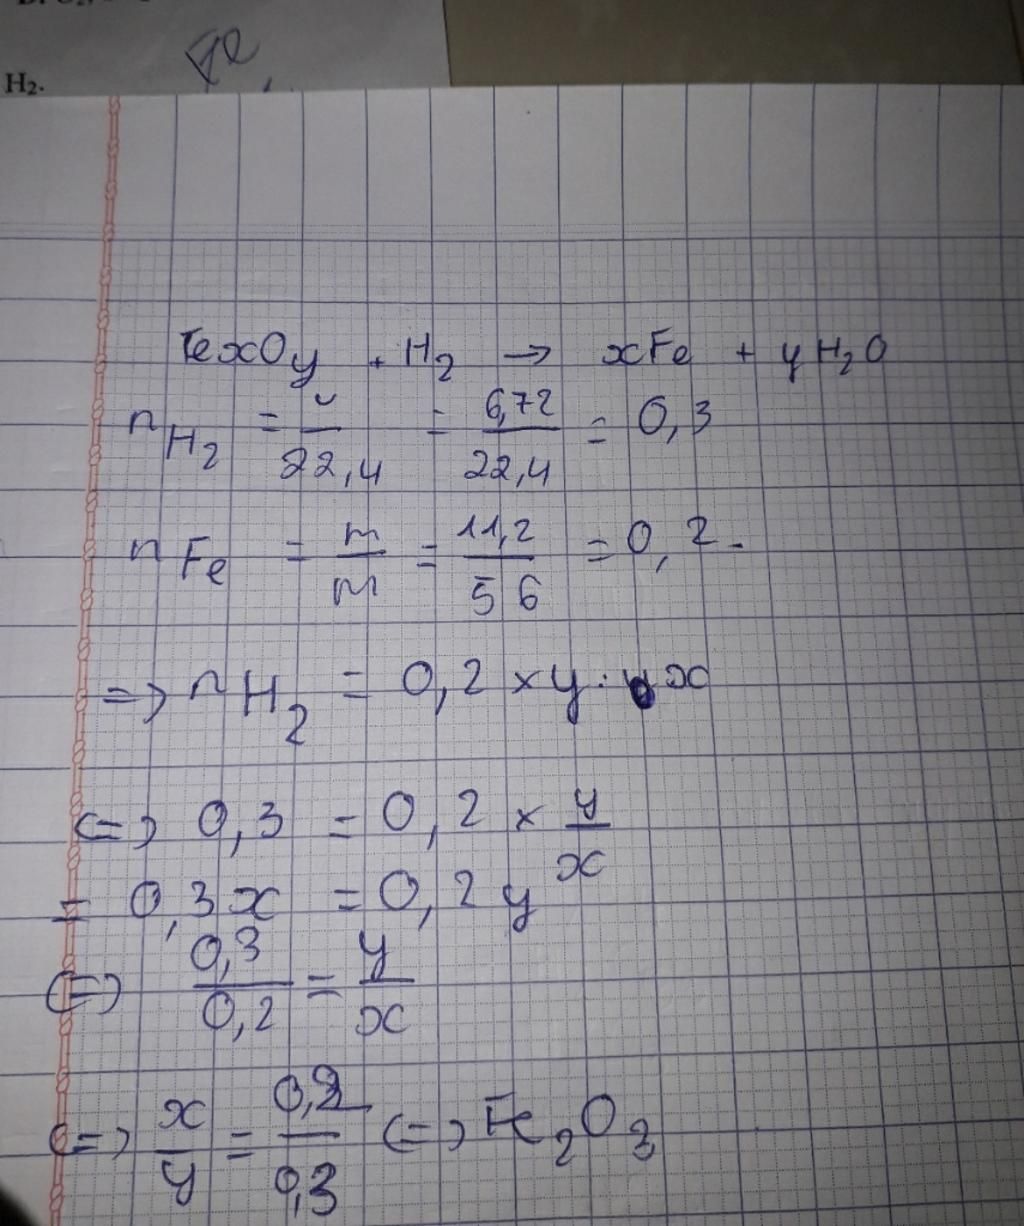 H₂.
FexOy + H₂ → xFe + yH₂O
nH₂ = v/22,4 = 6,72/22,4 = 0,3
nFe = m/M = 11,2/56 = 0,2.
=> nH₂ = 0,2 × y : x
<=> 0,3 = 0,2 × y/x
= 0,3x = 0,2y
<=> 0,3/0,2 = y/x
<=> x/y = 0,2/0,3 <=> Fe₂O₃